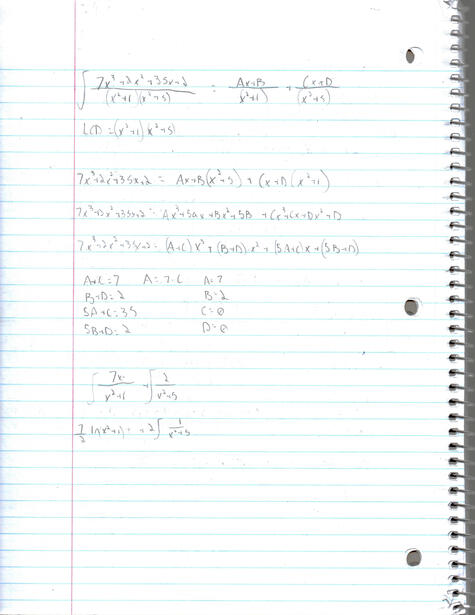 ∫ 7x³+2x²+35x+2 / (x²+1)(x²+5) = Ax+B / (x²+1) + Cx+D / (x²+5)
LCD = (x²+1)(x²+5)
7x³+2x²+35x+2 = Ax+B(x²+5) + Cx+D(x²+1)
7x³+2x²+35x+2 = Ax³+5ax+Bx²+5B + Cx³+Cx+Dx²+D
7x³+2x²+35x+2 = (A+C)x³ + (B+D)x² + (5A+C)x + (5B+D)
A+C=7 A=7-C A=7
B+D=2 B=2
5A+C=35 C=0
5B+D=2 D=0
∫ 7x / x²+1 + ∫ 2 / x²+5
7/2 ln(x²+1) + 2∫ 1 / x²+5